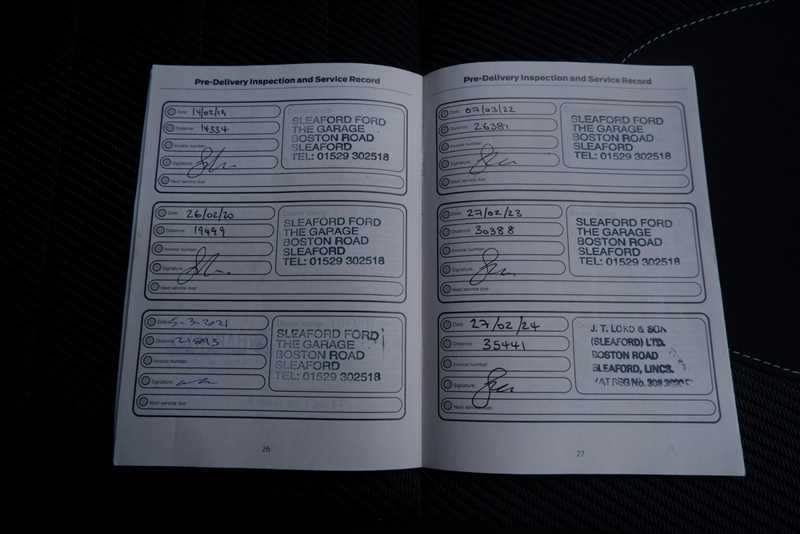 Pre-Delivery Inspection and Service Record
Date
Distance 14334
Invoice number
Signature
Next service due
SLEAFORD FORD
THE GARAGE
BOSTON ROAD
SLEAFORD
TEL: 01529 302518
Date 26/02/20
Distance 19499
Invoice number
Signature
Next service due
SLEAFORD FORD
THE GARAGE
BOSTON ROAD
SLEAFORD
TEL: 01529 302518
Date 5-3-2021
Distance
Invoice number
Signature
Next service due
SLEAFORD FORD
THE GARAGE
BOSTON ROAD
SLEAFORD
TEL: 01529 302518
26
Pre-Delivery Inspection and Service Record
Date 07/03/22
Distance 26381
Invoice number
Signature
Next service due
SLEAFORD FORD
THE GARAGE
BOSTON ROAD
SLEAFORD
TEL: 01529 302518
Date 27/02/23
Distance 30388
Invoice number
Signature
Next service due
SLEAFORD FORD
THE GARAGE
BOSTON ROAD
SLEAFORD
TEL: 01529 302518
Date 27/02/24
Distance 35441
Invoice number
Signature
Next service due
J. T. LORD & SON
(SLEAFORD) LTD.
BOSTON ROAD
SLEAFORD, LINCS.
VAT REG No.
27